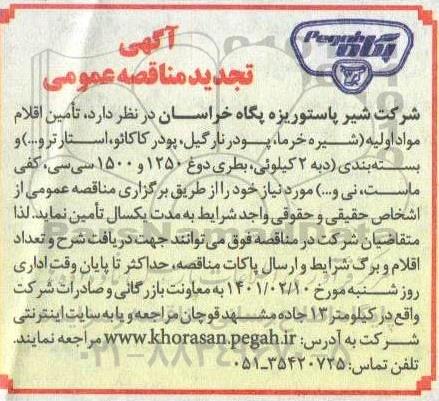 Pegah
پگاه
آگهی
تجدید مناقصه عمومی
شرکت شیر پاستوریزه پگاه خراسان در نظر دارد، تأمین اقلام
مواد اولیه (شیره خرما، پودر نارگیل، پودر کاکائو، استارتر و...) و
بسته‌بندی (دبه ۲ کیلوئی، بطری دوغ ۱۲۵۰ و ۱۵۰۰ سی‌سی، کفی
ماست، نی و...) مورد نیاز خود را از طریق برگزاری مناقصه عمومی از
اشخاص حقیقی و حقوقی واجد شرایط به مدت یکسال تأمین نماید. لذا
متقاضیان شرکت در مناقصه فوق می‌توانند جهت دریافت شرح و تعداد
اقلام و برگ شرایط و ارسال پاکات مناقصه، حداکثر تا پایان وقت اداری
روز شنبه مورخ ۱۴۰۱/۰۲/۱۰ به معاونت بازرگانی و صادرات شرکت
واقع در کیلومتر ۱۳ جاده مشهد قوچان مراجعه و یا به سایت اینترنتی
شرکت به آدرس: www.khorasan.pegah.ir مراجعه نمایند.
تلفن تماس: ۳۵۴۲۰۷۲۵-۰۵۱